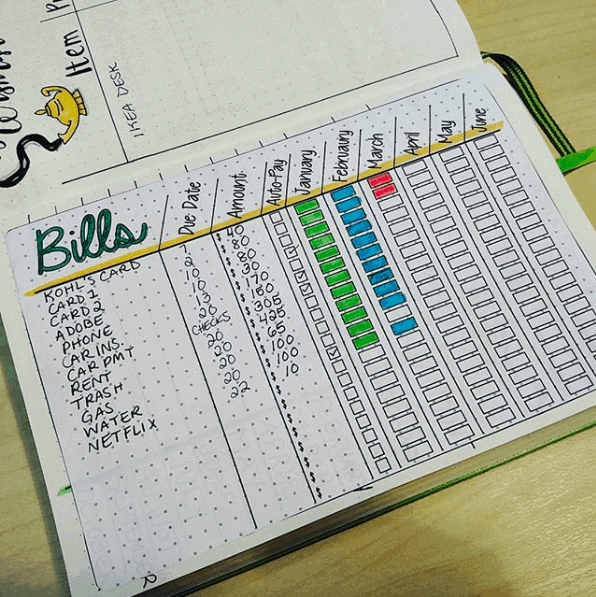 Item
IKEA DESK
Bills
Due Date
Amount
Auto-Pay
January
February
March
April
May
June
KOHL'S CARD
CARD 1
CARD 2
ADOBE
PHONE
CAR INS.
CAR PMT
RENT
TRASH
GAS
WATER
NETFLIX
2
10
10
13
20
CHECKS
20
20
20
20
22
$ 40
$ 80
$ 80
$ 30
$ 170
$ 150
$ 305
$ 425
$ 65
$ 100
$ 100
$ 10